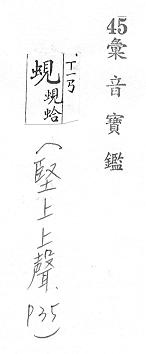 45彙音寶鑑
ㄒㄧㄢˋ
蜆
蜆蛤
（堅上上聲，P35）